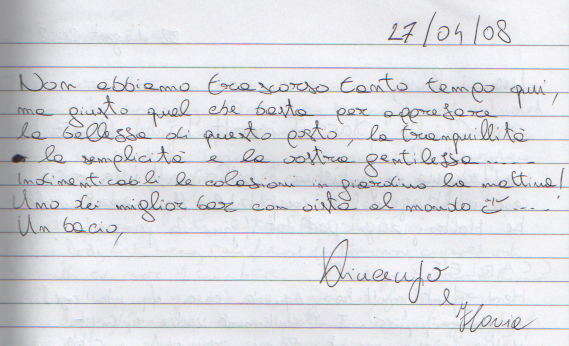 27/04/08
Non abbiamo trascorso tanto tempo qui,
ma giusto quel che basta per apprezzare
la bellezza di questo posto, la tranquillità
la semplicità e la vostra gentilezza.....
Indimenticabili le colazioni in giardino la mattina!
Uno dei miglior bar con vista al mondo ....
Un bacio,
e
Flavia